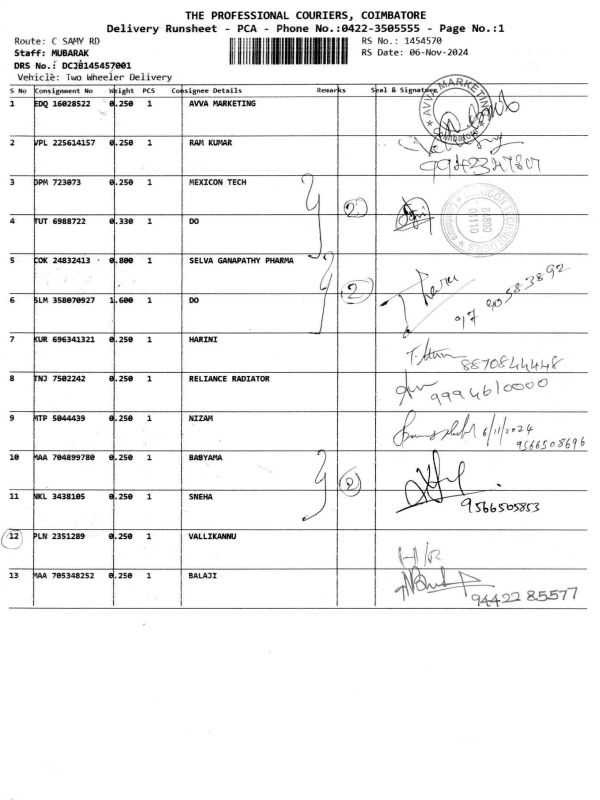 THE PROFESSIONAL COURIERS, COIMBATORE
Delivery Runsheet - PCA - Phone No.:0422-3505555 - Page No.:1
Route: C SAMY RD RS No.: 1454570
Staff: MUBARAK RS Date: 06-Nov-2024
DRS No.: DCJB145457001
Vehicle: Two Wheeler Delivery
S No Consignment No Weight PCS Consignee Details Remarks Seal & Signature
1 EDQ 16028522 0.250 1 AVVA MARKETING
AVVA MARKETING Coimbatore
2 VPL 225614157 0.250 1 RAM KUMAR
3 DPM 723073 0.250 1 MEXICON TECH
2
4 TUT 6988722 0.330 1 DO
5 COK 24832413 0.800 1 SELVA GANAPATHY PHARMA
2
6 SLM 358070927 1.600 1 DO
7 KUR 696341321 0.250 1 HARINI
8870844448
8 TNJ 7502242 0.250 1 RELIANCE RADIATOR
9994610000
9 MTP 5044439 0.250 1 NIZAM
6/11/2024
9566508696
10 MAA 704899780 0.250 1 BABYAMA
2
11 NKL 3438105 0.250 1 SNEHA
9566505853
12 PLN 2351289 0.250 1 VALLIKANNU
H/R
13 MAA 705348252 0.250 1 BALAJI
94422 85577